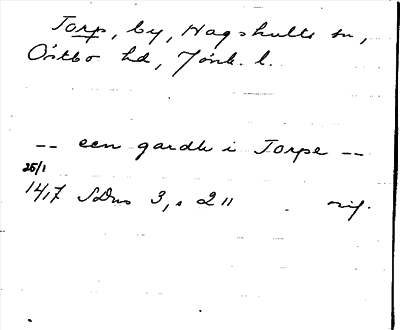 Torp, by, Hagshults sn,
Östbo hd, Jönk. l.
-- een gardh i Torpe --
25/1
1417 SDns 3, s 211 orig.